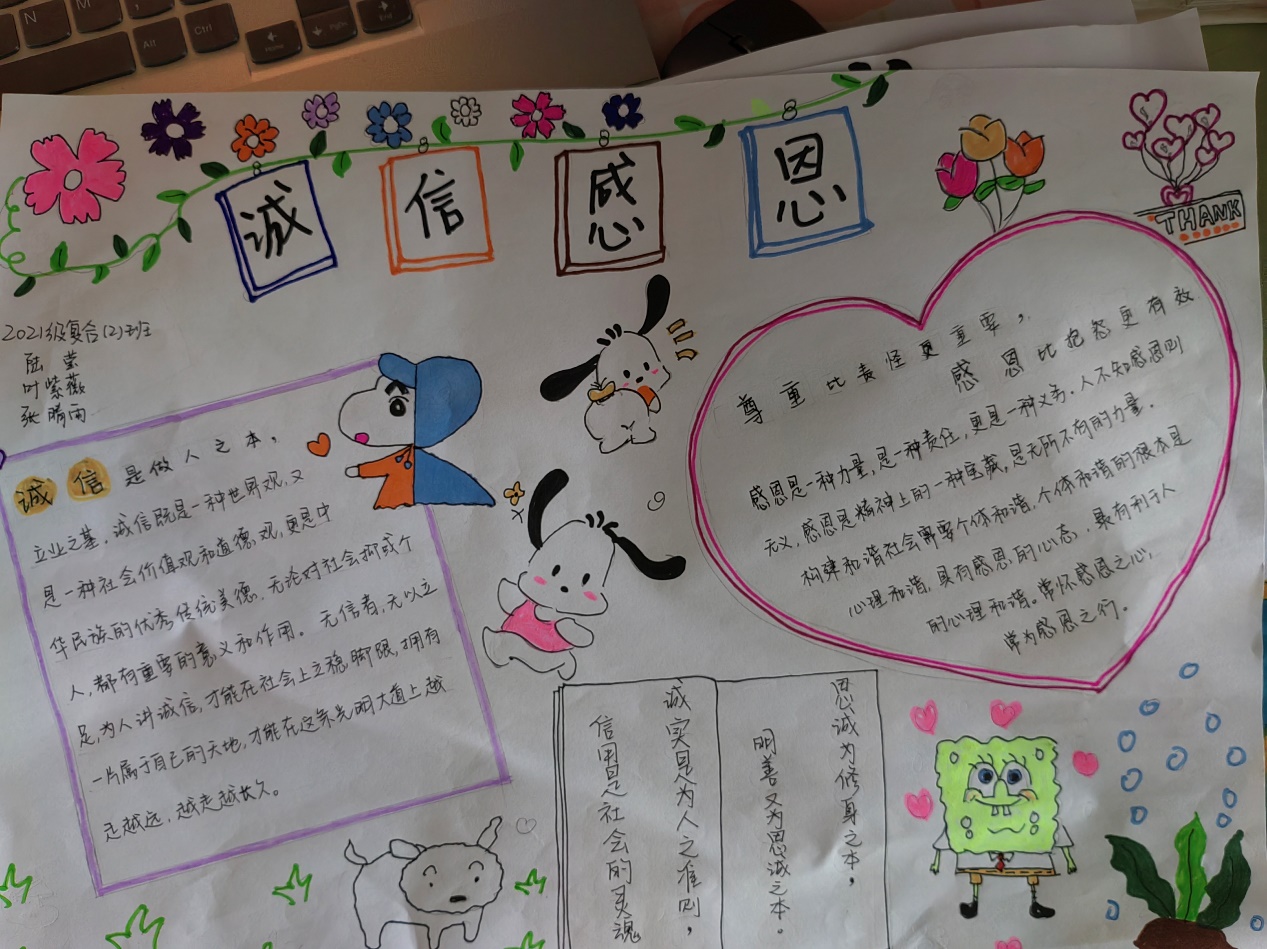 诚 信 感 恩
THANK
2021级复合(2)班
陆莹
叶紫薇
张晴雨
诚信是做人之本,
立业之基,诚信既是一种世界观,又
是一种社会价值观和道德观,更是中
华民族的优秀传统美德,无论对社会抑或个
人,都有重要的意义和作用。无信者,无以立
足,为人讲诚信,才能在社会上立稳脚跟,拥有
一片属于自己的天地,才能在这条光明大道上越
走越远,越走越长久。
尊重比责怪更重要,
感恩比抱怨更有效
感恩是一种力量,是一种责任,更是一种义务。人不知感恩则
无义,感恩是精神上的一种宝藏,是无所不有的力量。
构建和谐社会需要个体和谐,个体和谐的根本是
心理和谐,具有感恩的心态,最有利于人
的心理和谐。常怀感恩之心,
常为感恩之行。
思诚为修身之本,
明善又为思诚之本。
诚实是为人之准则,
信用是社会的灵魂